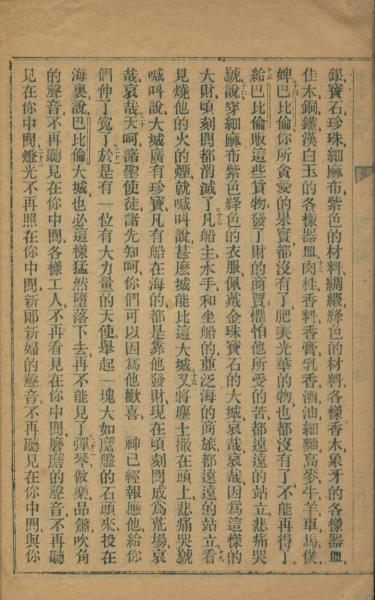 銀寶石珍珠細麻布紫色的材料綢緞絳色的材料各樣香木象牙的各樣器皿
佳木銅鐵漢白玉的各樣器皿肉桂香料香膏乳香酒油細麵高麥牛羊車馬僕
婢巴比倫你所貪愛的果實都沒有了肥美光華的物也都沒有了不能再得了
給巴比倫販這些貨物發了財的商賈懼怕他所受的苦都遠遠的站立悲痛哭
號說穿細麻布紫色絳色的衣服佩戴金珠寶石的大城哀哉哀哉因爲這樣的
大財頃刻間都消滅了凡船主水手和坐船的並泛海的商旅都遠遠的站立看
見燒他的火的煙就喊叫說甚麽城能比這大城又將塵土撒在頭上悲痛哭號
喊叫說大城廣有珍寶凡有船在海的都是靠他發財現在頃刻間成爲荒場哀
哉哀哉天呵諸聖使徒諸先知呵你們可以因爲他歡喜 神已經報應他給你
們伸了寃了於是有一位有大力量的天使舉起一塊大如磨盤的石頭來投在
海裏說巴比倫大城也必這樣猛然墮落下去再不能見了彈琴做樂品簫吹角
的聲音不再聽見在你中間各樣工人不再看見在你中間磨磨的聲音不再聽
見在你中間燈光不再照在你中間新郞新婦的聲音不再聽見在你中間與你